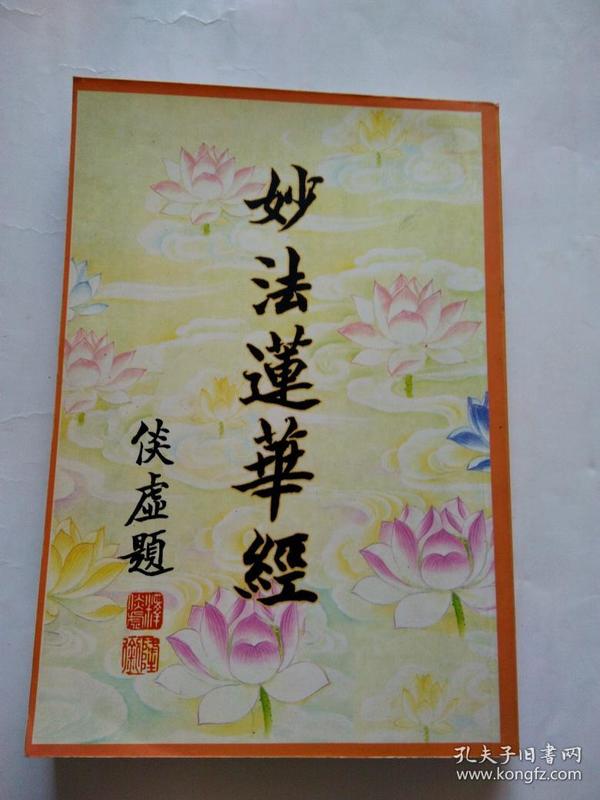 妙法蓮華經
倓虛題
孔夫子旧書网
www.kongfz.com